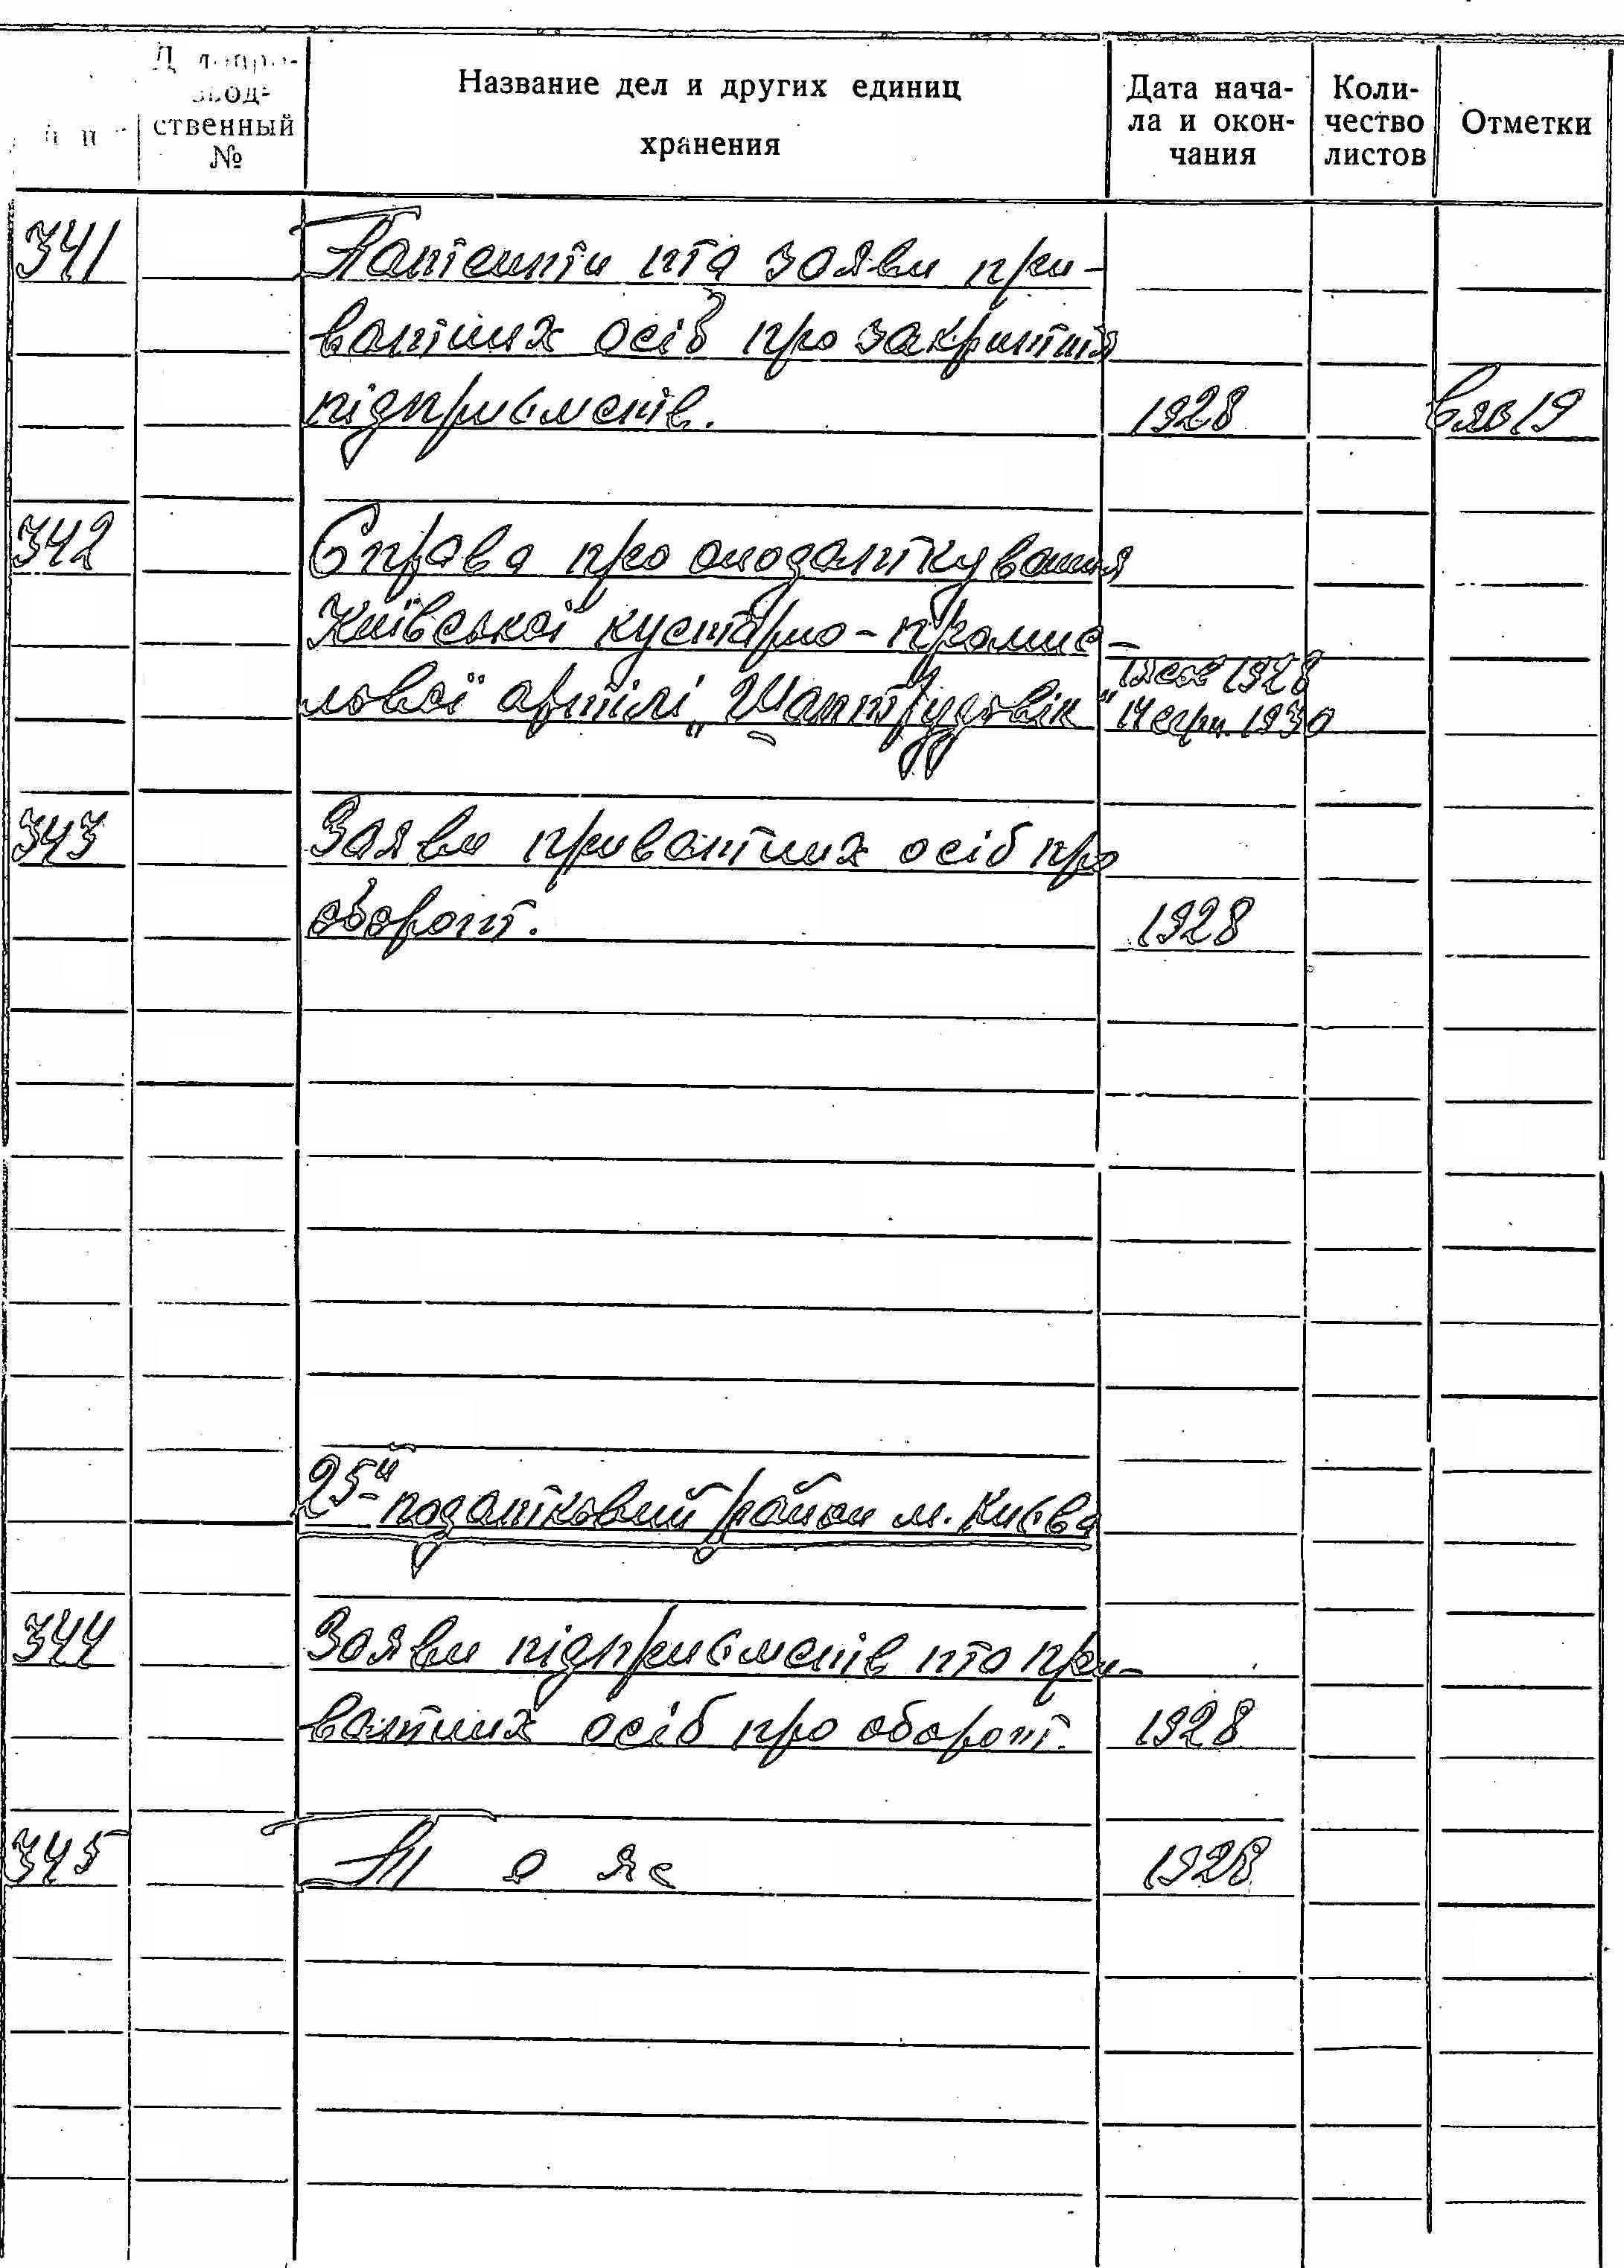 Делопро-
вод-
ственный
№
Название дел и других единиц
хранения
Дата нача-
ла и окон-
чания
Коли-
чество
листов
Отметки
341
Патенти та заяви при-
ватних осіб про закриття
підприємств.
1928
342
Справа про оподаткування
Київської кустарно-промис-
лової артілі „Шаптрудовік"
1928
14 серп. 1930
343
Заяви приватних осіб про
оборот.
1928
25й податковий район м. Києва
344
Заяви підприємств та при-
ватних осіб про оборот.
1928
345
Т о ж
1928